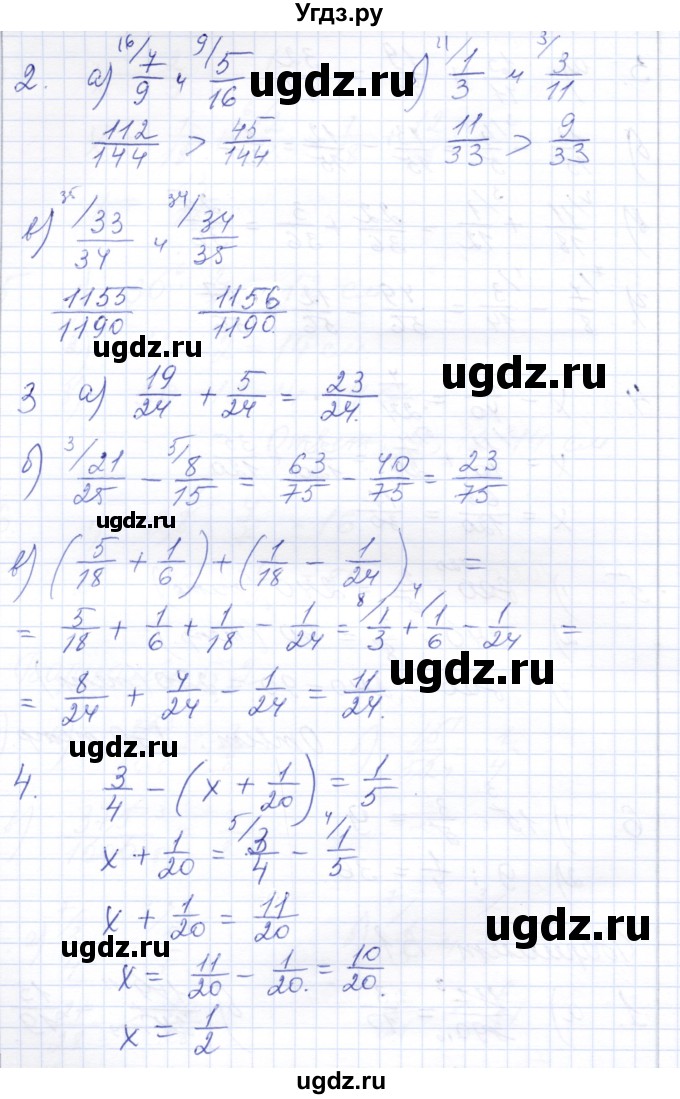 Угдз.ру
2. а) 16/ 7/9 и 9/ 5/16 б) 11/ 1/3 и 3/ 3/11
ugdz.ru ugdz.ru
112/144 > 45/144 11/33 > 9/33
в) 35/ 33/34 и 34/ 34/35
1155/1190 1156/1190
ugdz.ru ugdz.ru
3 а) 19/24 + 5/24 = 23/24.
б) 3/ 21/25 - 5/ 8/15 = 63/75 - 40/75 = 23/75
ugdz.ru
в) (5/18 + 1/6) + (1/18 - 1/24) =
= 5/18 + 1/6 + 1/18 - 1/24 = 8/ 1/3 + 4/ 1/6 - 1/24 =
ugdz.ru
= 8/24 + 4/24 - 1/24 = 11/24.
ugdz.ru
4. 3/4 - (x + 1/20) = 1/5
x + 1/20 = 5/ 3/4 - 4/ 1/5
x + 1/20 = 11/20
ugdz.ru ugdz.ru
x = 11/20 - 1/20. = 10/20.
x = 1/2
ugdz.ru